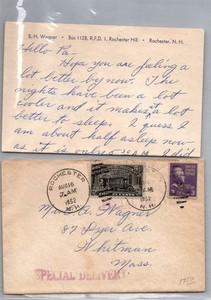 B. H. Wagner • Box 112B, R.F.D. 1, Rochester Hill • Rochester, N. H.
Hello Pa-
Hope you are feeling a
lot better by now. The
nights have been a lot
cooler and it makes it a lot
better to sleep. I guess I
am about half asleep now
as it is only
ROCHESTER
AUG 16
AM
1952
N.H.
1952
N.H.
A. Wagner
87 Dyer Ave
Whitman
Mass.
SPECIAL DELIVERY